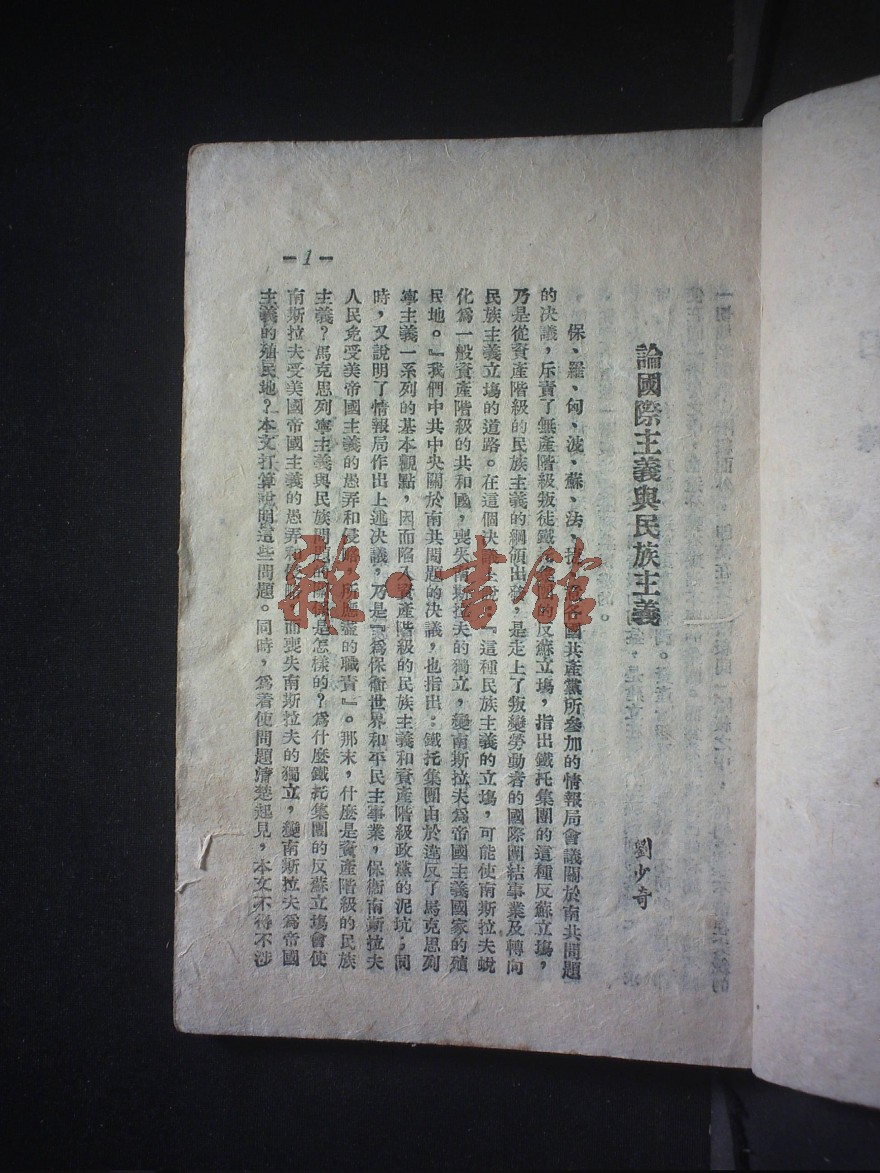 論國際主義與民族主義
劉少奇
保、羅、匈、波、蘇、法、各國共產黨所參加的情報局會議關於南共問題
的决議，斥責了無產階級叛徒鐵托集團的反蘇立塲，指出鐵托集團的這種反蘇立塲，
乃是從資產階級的民族主義的綱領出發，是走上了叛變勞動者的國際團結事業及轉向
民族主義立塲的道路。在這個决議上說：『這種民族主義的立塲，可能使南斯拉夫蛻
化爲一般資產階級的共和國，喪失南斯拉夫的獨立，變南斯拉夫爲帝國主義國家的殖
民地。』我們中共中央關於南共問題的决議，也指出：鐵托集團由於違反了馬克思列
寧主義一系列的基本觀點，因而陷入資產階級的民族主義和資產階級政黨的泥坑；同
時，又說明了情報局作出上述决議，乃是『爲保衛世界和平民主事業，保衛南斯拉夫
人民免受美帝國主義的愚弄和侵略，所應盡的職責』。那末，什麼是資產階級的民族
主義？馬克思列寧主義與民族問題的是怎樣的？爲什麼鐵托集團的反蘇立塲會使
南斯拉夫受美國帝國主義的愚弄和侵略，而喪失南斯拉夫的獨立，變南斯拉夫爲帝國
主義的殖民地？本文打算說明這些問題。同時，爲着使問題淸楚起見，本文不得不涉
-1-
雜·書館